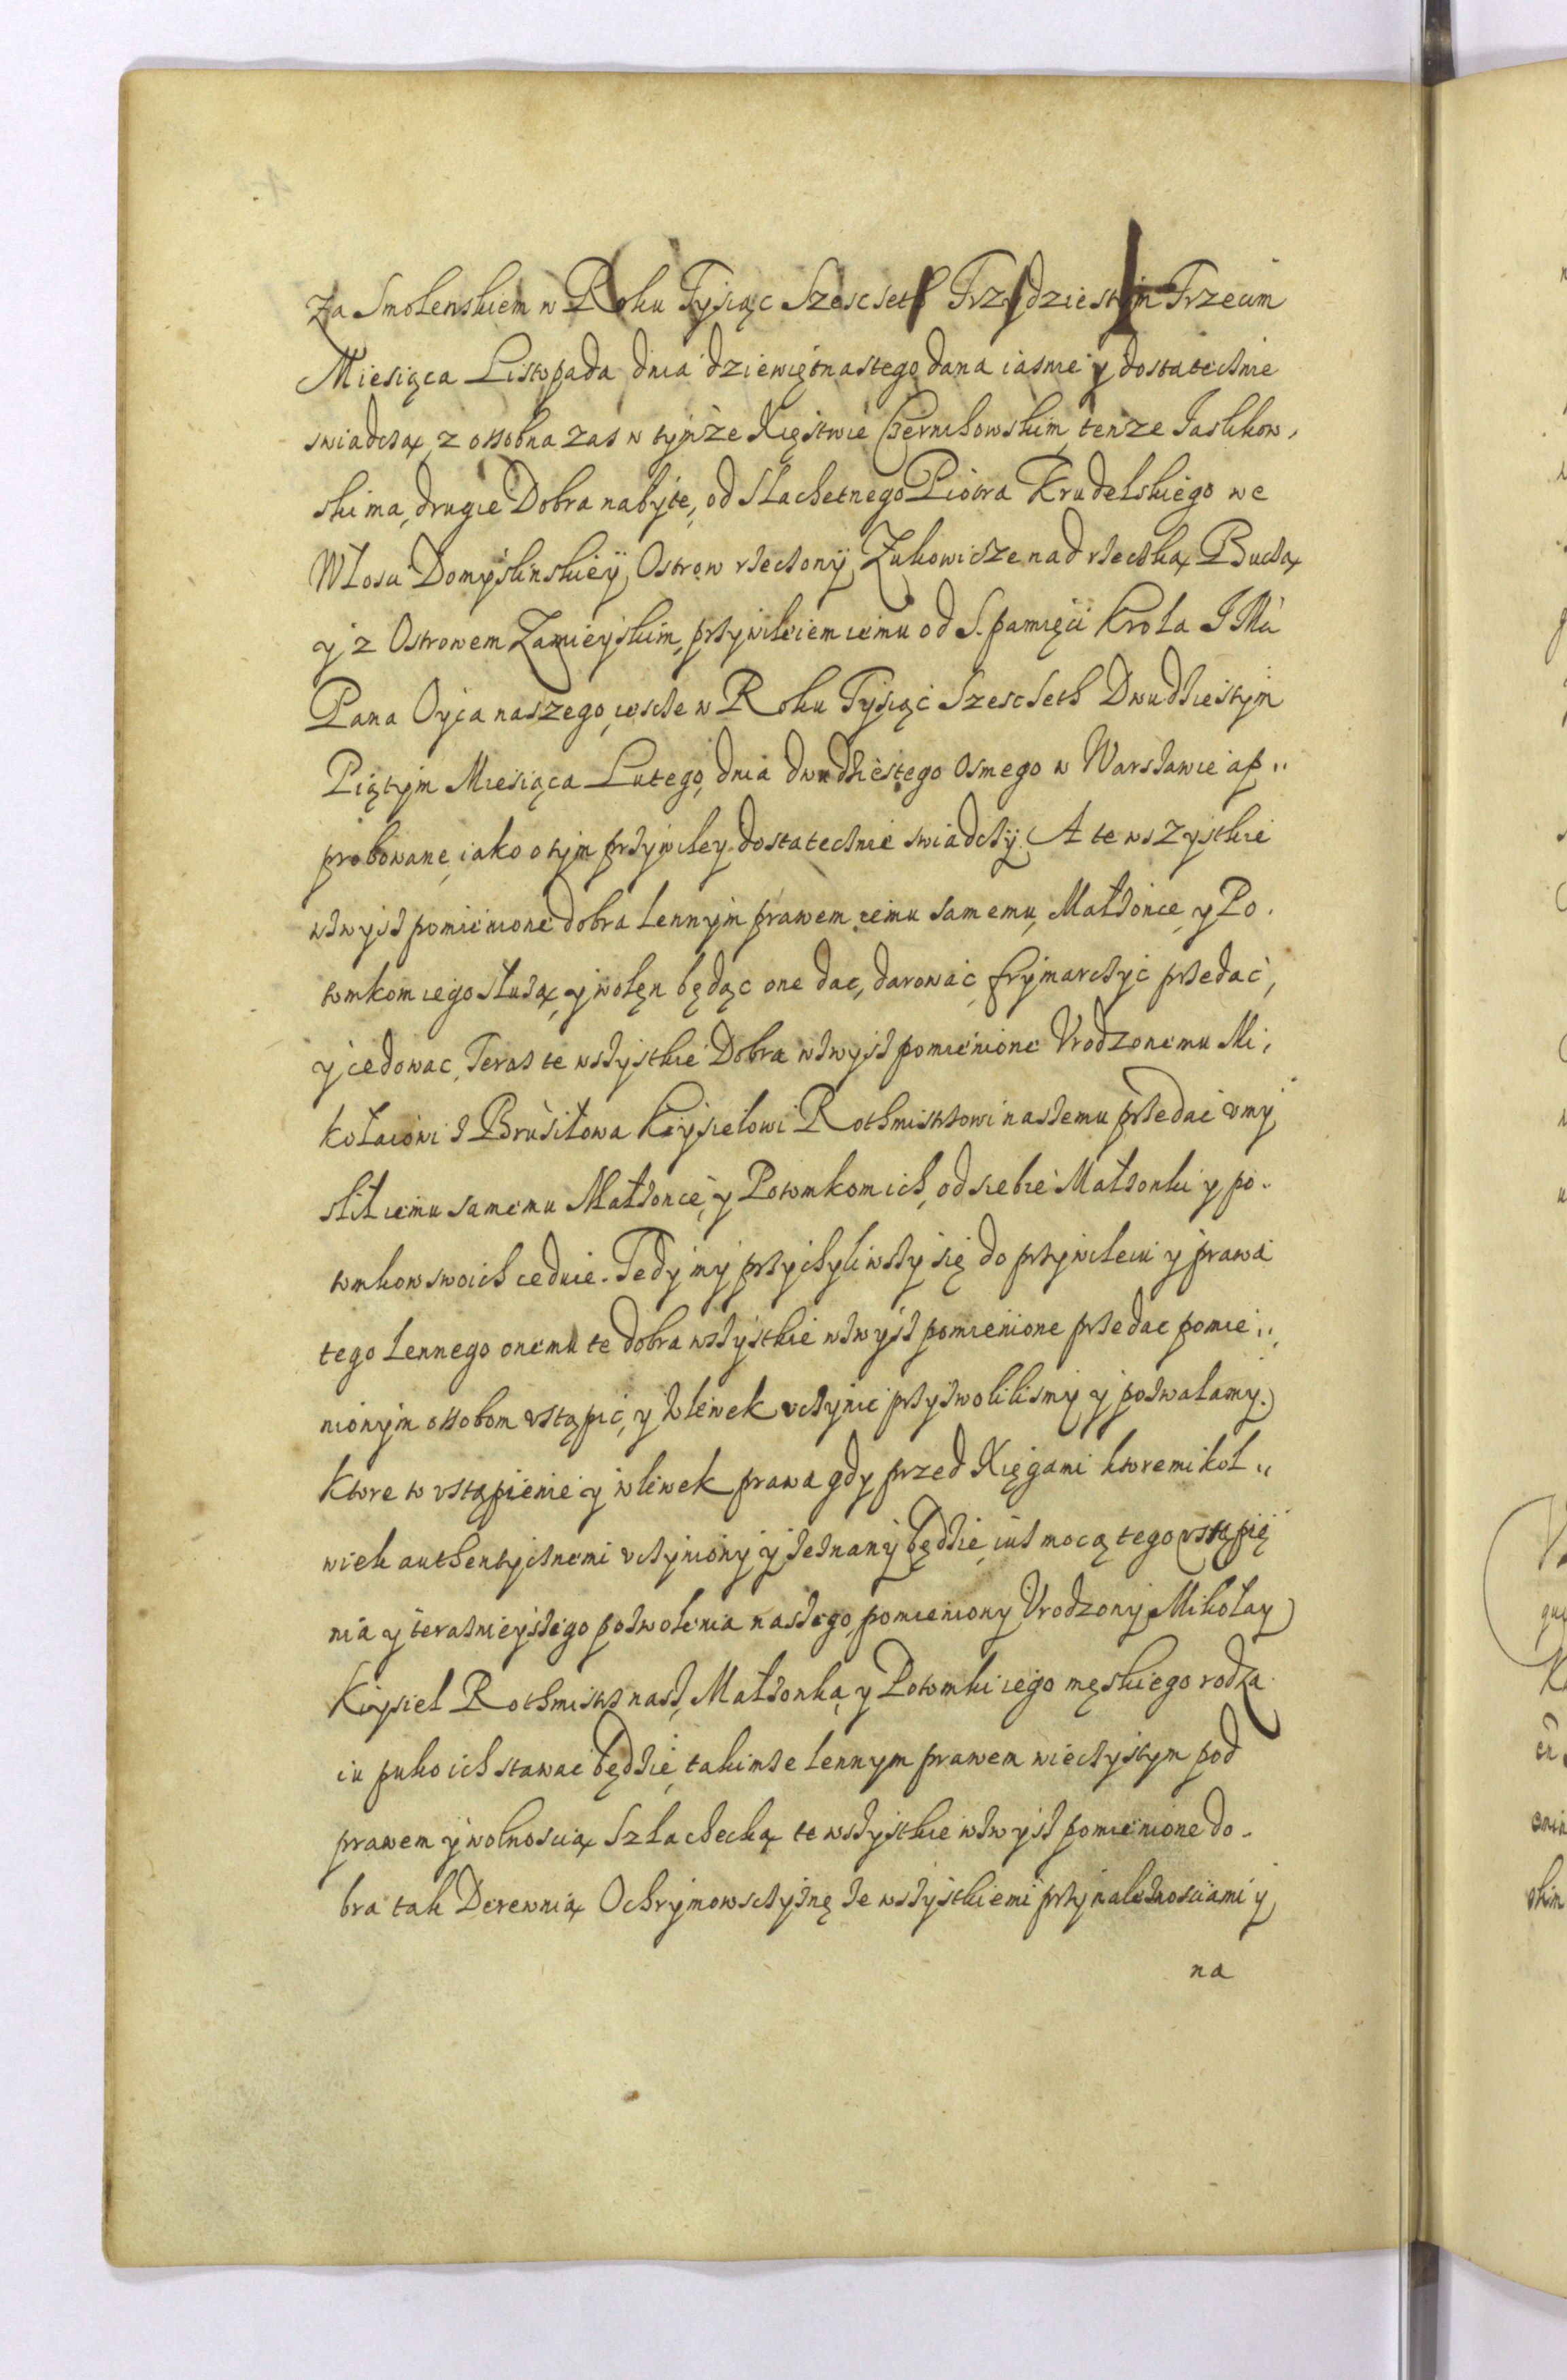 Za Smolenskiem w Roku Tysiąc Szescseth Trzydziestym Trzecim
Miesiąca Listopada dnia dziewiętnastego dana iasnie y dostatecżnie
swiadcżą, z ossobna zas w tymze Xięstwie Czernihowskim tenze Jaślikow,
ski ma, drugie Dobra nabyte, od Slachetnego Piotra Krudelskiego we
Włosci Domyslinskiey Ostrow rżecżony Zukowicze nad rżecżką Bucżą
y z Ostrowem Zamieyskim, przywileiem iemu od S. pamięci Krola J Mci
Pana Oyca naszego, iescże w Roku Tysiąc Szescseth Dwudziestym
Piątym Miesiąca Lutego, dnia dwudziestego Osmego w Warszawie ap„
probowane, iako o tym przywiley dostatecżnie swiadcży. A te wszystkie
wżwysż pomienione dobra lennym prawem iemu samemu, Małżonce, y Po.
tomkom iego służą, y wolen będąc one dac, darowac, frymarcżyc przedac,
y cedowac, Teraz te wszystkie Dobra wżwysż pomienione Urodzonemu Mi,
kołaiowi z Brusiłowa Kisielowi Rothmistrzowi naszemu przedac umy
slił iemu samemu Małżonce, y Potomkom ich, od siebie Małżonki y po.
tomkow swoich ceduie. Tedy my przychyliwszy się do przywileiu y prawa
tego lennego onemu te dobra wszystkie wżwysż pomienione przedac pomie„
nionym ossobom ustąpic, y wlewek ucżynic przyzwolilismy y pozwalamy.
Ktore to ustąpienie y wlewek prawa gdy przed Xięgami ktoremikol„
wiek authentycżnemi ucżyniony y zeznany będzie, iuż mocą tego ustąpię
nia y teraznieyszego pozwolenia naszego, pomieniony Urodzony Mikołay
Kisiel Rothmistrz nasz, Małżonka, y Potomki iego męskiego rodza
iu puko ich stawac będzie, takimże lennym prawem wiecżystym pod
prawem y wolnoscią Szlachecką te wszystkie wżwysż pomienione do.
bra tak Derewnią Ochrymowscżyznę ze wszystkiemi przynależnosciami y
na